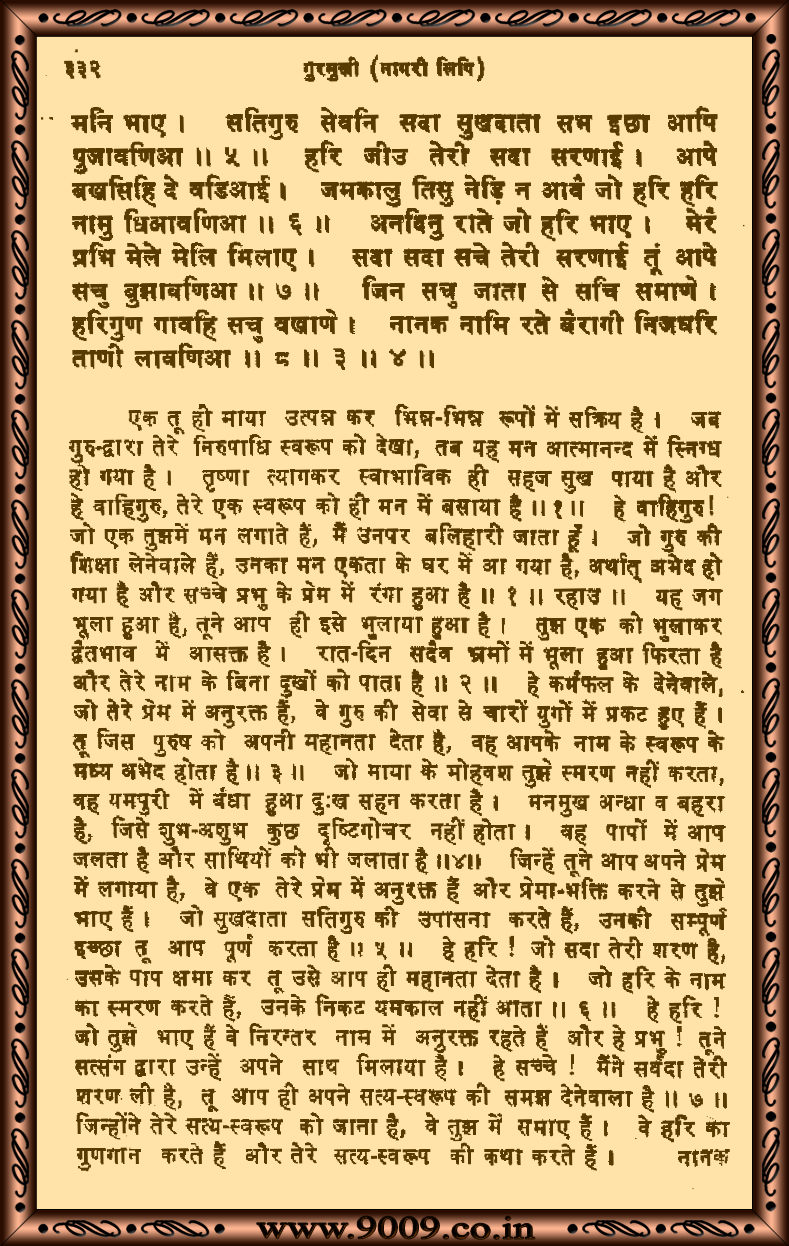 ३३२ गुरमुखी (नागरी लिपि)
मनि भाए । सतिगुरु सेवनि सदा सुखदाता सभ इछा आपि
पुजावणिआ ।। ५ ।। हरि जीउ तेरी सदा सरणाई । आपे
बखसिहि दे वडिआई । जमकालु तिसु नेड़ि न आवै जो हरि हरि
नामु धिआवणिआ ।। ६ ।। अनदिनु राते जो हरि भाए । मेरै
प्रभि मेले मेलि मिलाए । सदा सदा सचे तेरी सरणाई तूं आपे
सचु बुझावणिआ ।। ७ ।। जिन सचु जाता से सचि समाणे ।
हरिगुण गावहि सचु वखाणे । नानक नामि रते बैरागी निजघरि
ताणी लावणिआ ।। ८ ।। ३ ।। ४ ।।
एक तू ही माया उत्पन्न कर भिन्न-भिन्न रूपों में सक्रिय है । जब
गुरु-द्वारा तेरे निरुपाधि स्वरूप को देखा, तब यह मन आत्मानन्द में स्निग्ध
हो गया है । तृष्णा त्यागकर स्वाभाविक ही सहज सुख पाया है और
हे वाहिगुरु, तेरे एक स्वरूप को ही मन में बसाया है ।। १ ।। हे वाहिगुरु!
जो एक तुझमें मन लगाते हैं, मैं उनपर बलिहारी जाता हूँ । जो गुरु की
शिक्षा लेनेवाले हैं, उनका मन एकता के घर में आ गया है, अर्थात् अभेद हो
गया है और सच्चे प्रभु के प्रेम में रंगा हुआ है ।। १ ।। रहाउ ।। यह जग
भूला हुआ है, तूने आप ही इसे भुलाया हुआ है । तुझ एक को भुलाकर
द्वैतभाव में आसक्त है । रात-दिन सदैव भ्रमों में भूला हुआ फिरता है
और तेरे नाम के बिना दुखों को पाता है ।। २ ।। हे कर्मफल के देनेवाले,
जो तेरे प्रेम में अनुरक्त हैं, वे गुरु की सेवा से चारों युगों में प्रकट हुए हैं ।
तू जिस पुरुष को अपनी महानता देता है, वह आपके नाम के स्वरूप के
मध्य अभेद होता है ।। ३ ।। जो माया के मोहवश तुझे स्मरण नहीं करता,
वह यमपुरी में बंधा हुआ दुःख सहन करता है । मनमुख अन्धा व बहरा
है, जिसे शुभ-अशुभ कुछ दृष्टिगोचर नहीं होता । वह पापों में आप
जलता है और साथियों को भी जलाता है ।।४।। जिन्हें तूने आप अपने प्रेम
में लगाया है, वे एक तेरे प्रेम में अनुरक्त हैं और प्रेमा-भक्ति करने से तुझे
भाए हैं । जो सुखदाता सतिगुरु की उपासना करते हैं, उनकी सम्पूर्ण
इच्छा तू आप पूर्ण करता है ।। ५ ।। हे हरि ! जो सदा तेरी शरण है,
उसके पाप क्षमा कर तू उसे आप ही महानता देता है । जो हरि के नाम
का स्मरण करते हैं, उनके निकट यमकाल नहीं आता ।। ६ ।। हे हरि !
जो तुझे भाए हैं वे निरन्तर नाम में अनुरक्त रहते हैं और हे प्रभु ! तूने
सत्संग द्वारा उन्हें अपने साथ मिलाया है । हे सच्चे ! मैंने सर्वदा तेरी
शरण ली है, तू आप ही अपने सत्य-स्वरूप की समझ देनेवाला है ।। ७ ।।
जिन्होंने तेरे सत्य-स्वरूप को जाना है, वे तुझ में समाए हैं । वे हरि का
गुणगान करते हैं और तेरे सत्य-स्वरूप की कथा करते हैं । नानक
www.9009.co.in